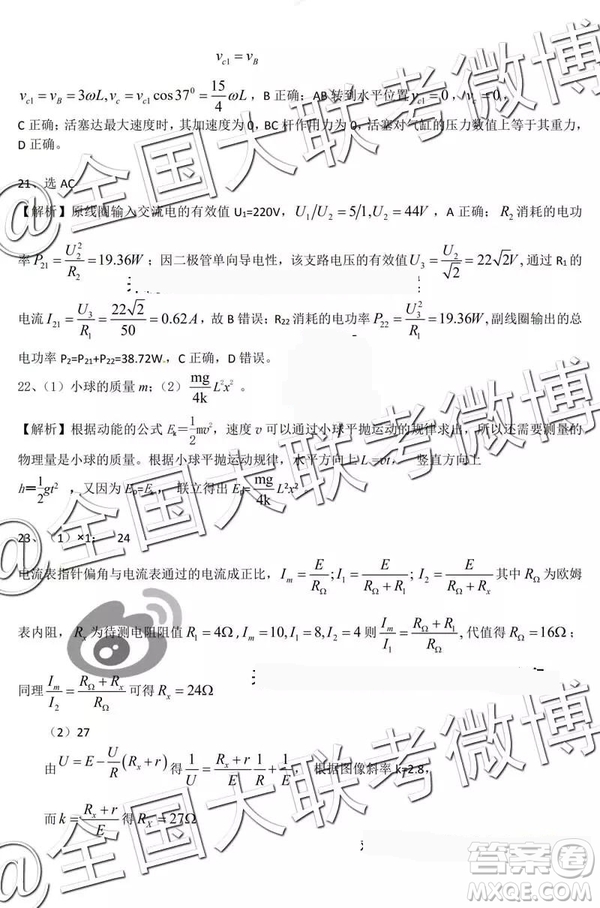 v_{c1} = v_B
v_{c1} = v_B = 3ωL, v_c = v_{c1} cos37^0 = \frac{15}{4} ωL，B 正确；AB 转到水平位置 v_{c1} = 0，v_c = 0，
C 正确；活塞达最大速度时，其加速度为 0，BC 杆作用力为 0，活塞对气缸的压力数值上等于其重力，
D 正确。
21、选 AC
【解析】原线圈输入交流电的有效值 U₁=220V，U_1/U_2 = 5/1, U_2 = 44V，A 正确；R_2 消耗的电功
率 P_{21} = \frac{U_2^2}{R_2} = 19.36W；因二极管单向导电性，该支路电压的有效值 U_3 = \frac{U_2}{\sqrt{2}} = 22\sqrt{2}V, 通过 R₁ 的
电流 I_{21} = \frac{U_3}{R_1} = \frac{22\sqrt{2}}{50} = 0.62A，故 B 错误；R₂₂ 消耗的电功率 P_{22} = \frac{U_3^2}{R_1} = 19.36W, 副线圈输出的总
电功率 P₂=P₂₁+P₂₂=38.72W，C 正确，D 错误。
22、（1）小球的质量 m；（2）\frac{mg}{4k} L²x² 。
【解析】根据动能的公式 E_k=\frac{1}{2}mv²，速度 v 可以通过小球平抛运动的规律求出，所以还需要测量的
物理量是小球的质量。根据小球平抛运动规律，水平方向上 L=vt， 竖直方向上
h=\frac{1}{2}gt² ，又因为 E_p=E_k，联立得出 E_p=\frac{mg}{4k} L²x²
23、（1）×1； 24
电流表指针偏角与电流表通过的电流成正比，I_m = \frac{E}{R_Ω}; I_1 = \frac{E}{R_Ω + R_1}; I_2 = \frac{E}{R_Ω + R_x} 其中 R_Ω 为欧姆
表内阻，R_x 为待测电阻阻值 R_1 = 4Ω, I_m = 10, I_1 = 8, I_2 = 4 则 \frac{I_m}{I_1} = \frac{R_Ω + R_1}{R_Ω}, 代值得 R_Ω = 16Ω；
同理 \frac{I_m}{I_2} = \frac{R_Ω + R_x}{R_Ω} 可得 R_x = 24Ω
（2）27
由 U = E - \frac{U}{R}(R_x + r) 得 \frac{1}{U} = \frac{R_x + r}{E} \frac{1}{R} + \frac{1}{E}， 根据图像斜率 k=2.8，
而 k = \frac{R_x + r}{E} 得 R_X = 27Ω
@全国大联考微博
@全国大联考微博
@全国大联考微博
答案卷
MXQE.COM